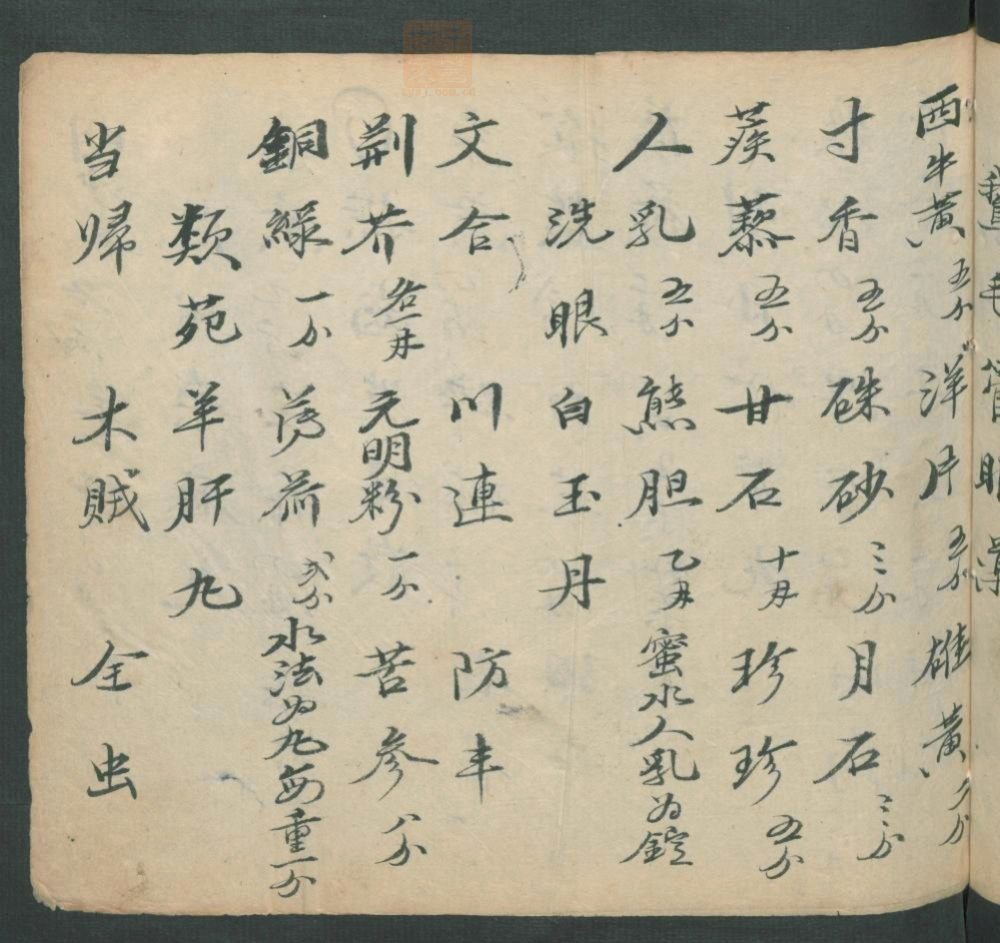 西牛黃五分 洋片五分 雄黃六分
寸香五分 硃砂三分 月石三分
蒺藜五分 甘石十月 珍珍五分
人乳五分 熊胆乙月 蜜水人乳为錠
洗眼白玉丹
文合 川連 防丰
荆芥各五月 元明粉一分 苦參八分
銅綠一分 薄荷弍分 水法为丸每重一分
類苑羊肝丸
当帰 木賊 全虫